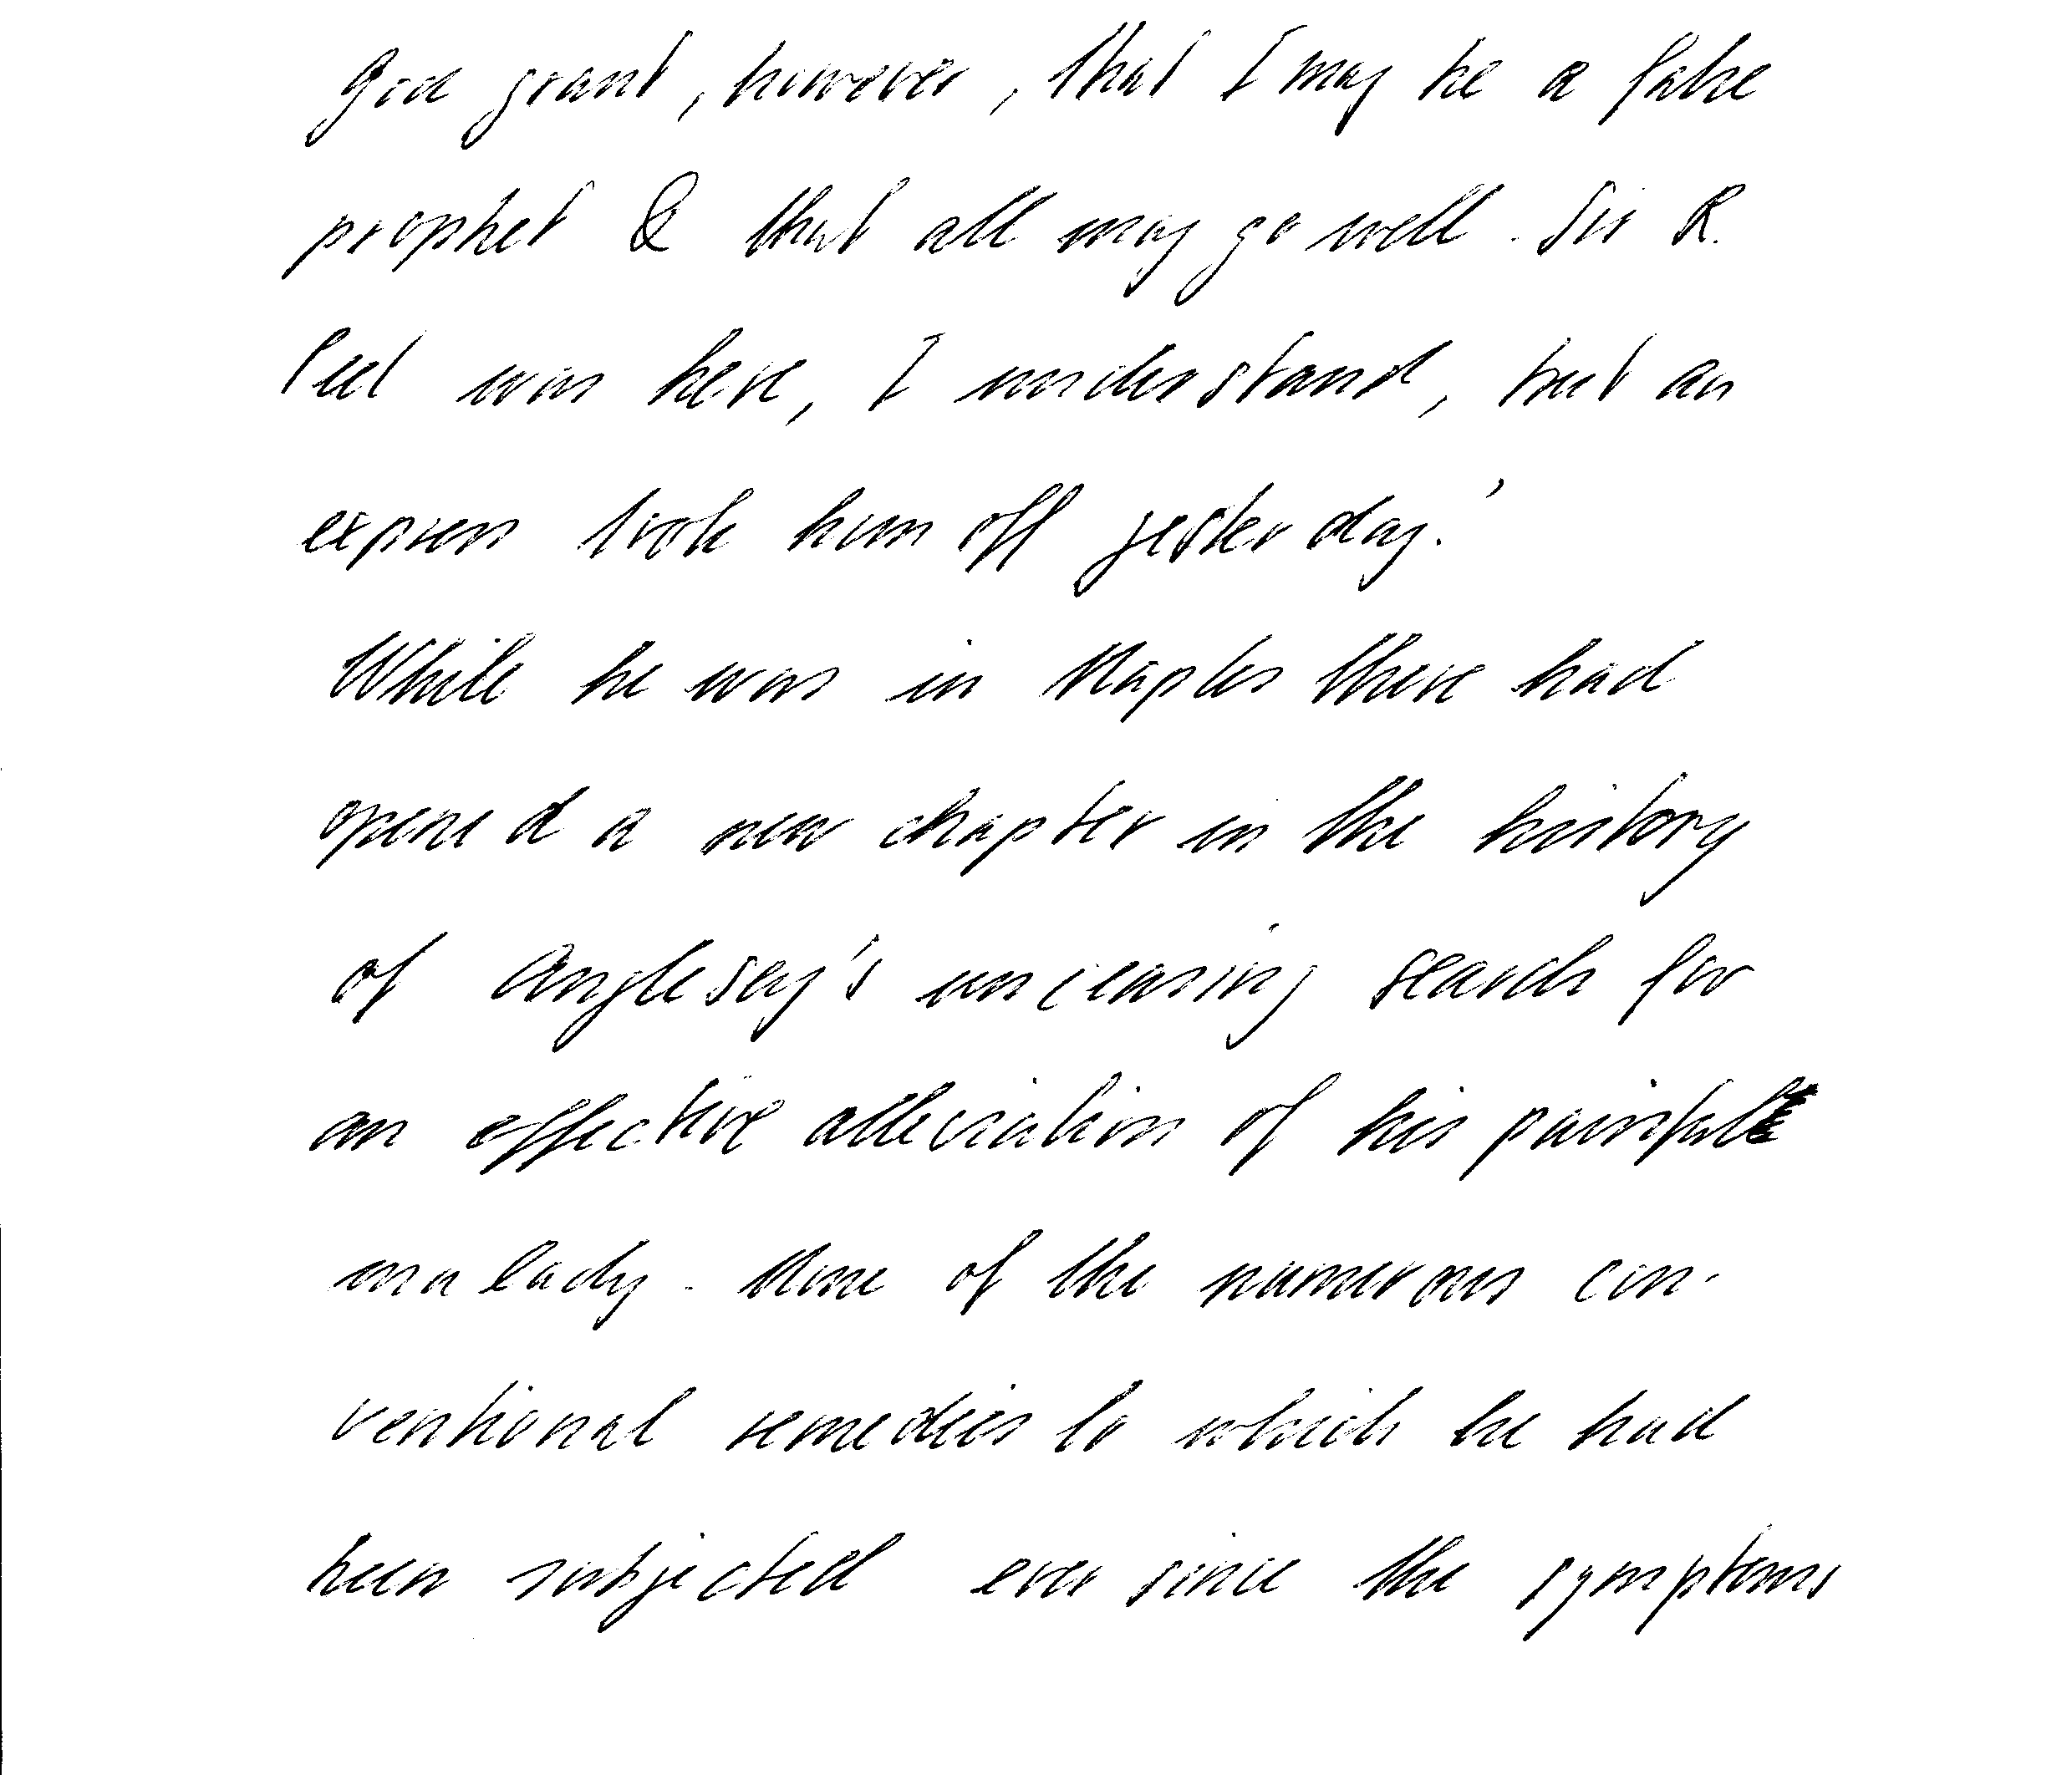 God grant, however, that I may be a false
prophet & that all may go well. Sir R.
Peel was here, I understand, but an
express took him off yesterday.'
While he was in Naples there had
opened a new chapter in the history
of Anglesey's unceasing search for
an effective alleviation of his painful
malady. None of the numerous con-
ventional remedies to which he had
been subjected ever since the symptoms